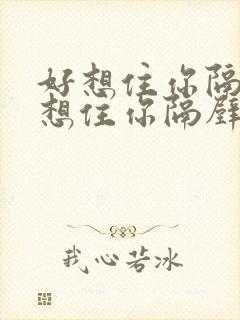 好想住你隔
想住你隔壁
我心若冰